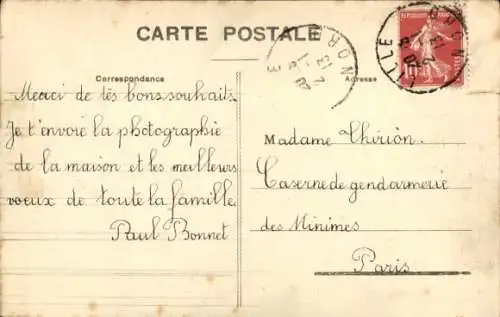 CARTE POSTALE
Correspondance
Adresse
Merci de tes bons souhaits.
Je t'envoie la photographie
de la maison et les meilleurs
voeux de toute la famille.
Paul Bonnet
Madame Thirion
Caserne de gendarmerie
des Minimes
Paris